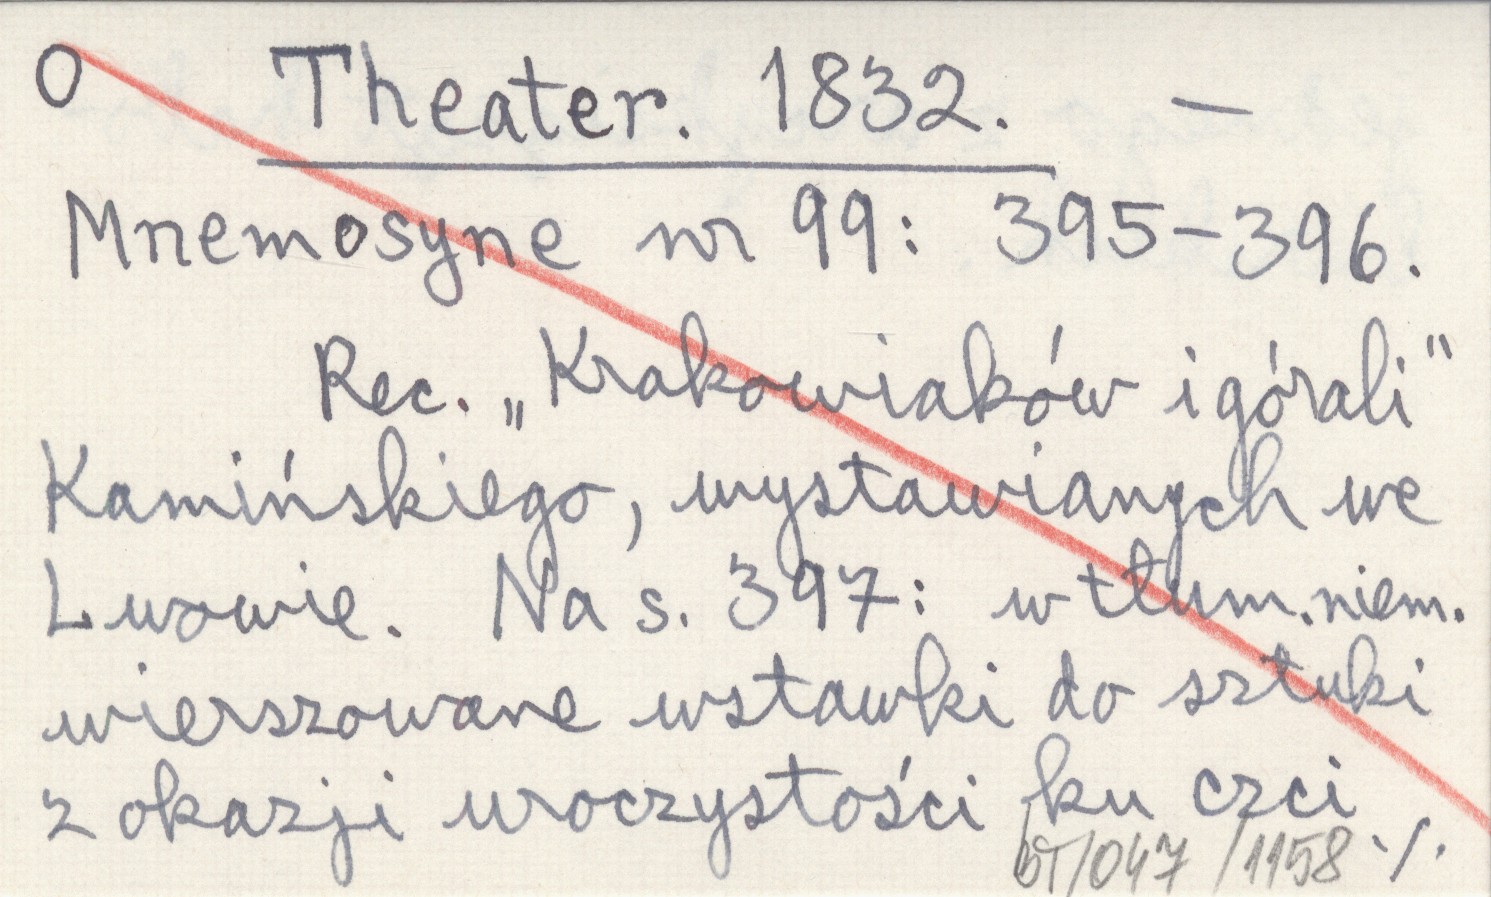 O Theater. 1832. —
Mnemosyne nr 99: 395-396.
Rec. „Krakowiaków i górali"
Kamińskiego, wystawianych we
Lwowie. Na s. 397: w tłum. niem.
wierszowane wstawki do sztuki
z okazji uroczystości ku czci
bT/047/1158 ·/·